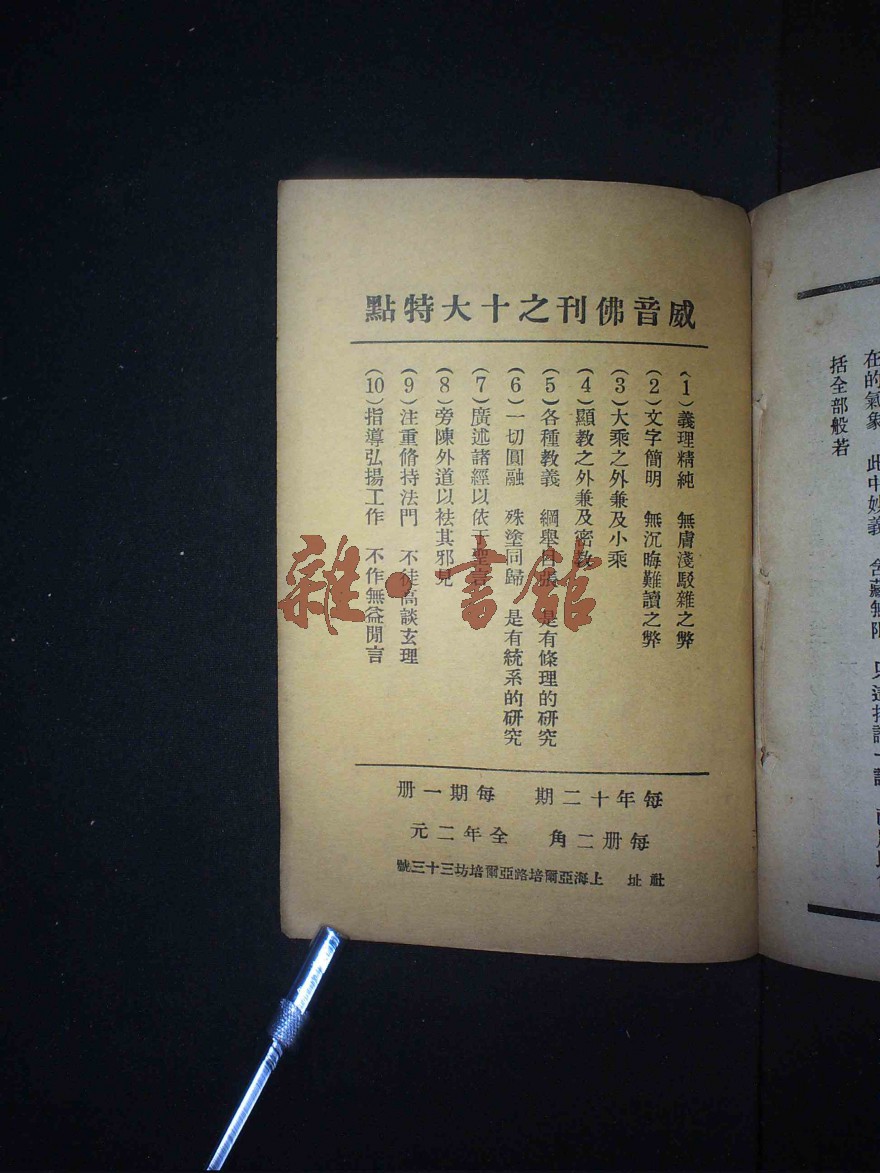 威音佛刊之十大特點
（1）義理精純　無膚淺駁雜之弊
（2）文字簡明　無沉晦難讀之弊
（3）大乘之外兼及小乘
（4）顯教之外兼及密教
（5）各種教義　綱舉目張　是有條理的研究
（6）一切圓融　殊塗同歸　是有統系的研究
（7）廣述諸經以依于聖言
（8）旁陳外道以祛其邪見
（9）注重脩持法門　不徒高談玄理
（10）指導弘揚工作　不作無益閒言
每年十二期　每期一册
每册二角　全年二元
社址　上海亞爾培路亞爾培坊三十三號
雜·書館
在的氣象　此中妙義　含藏無限　只這持誦一
括全部般若